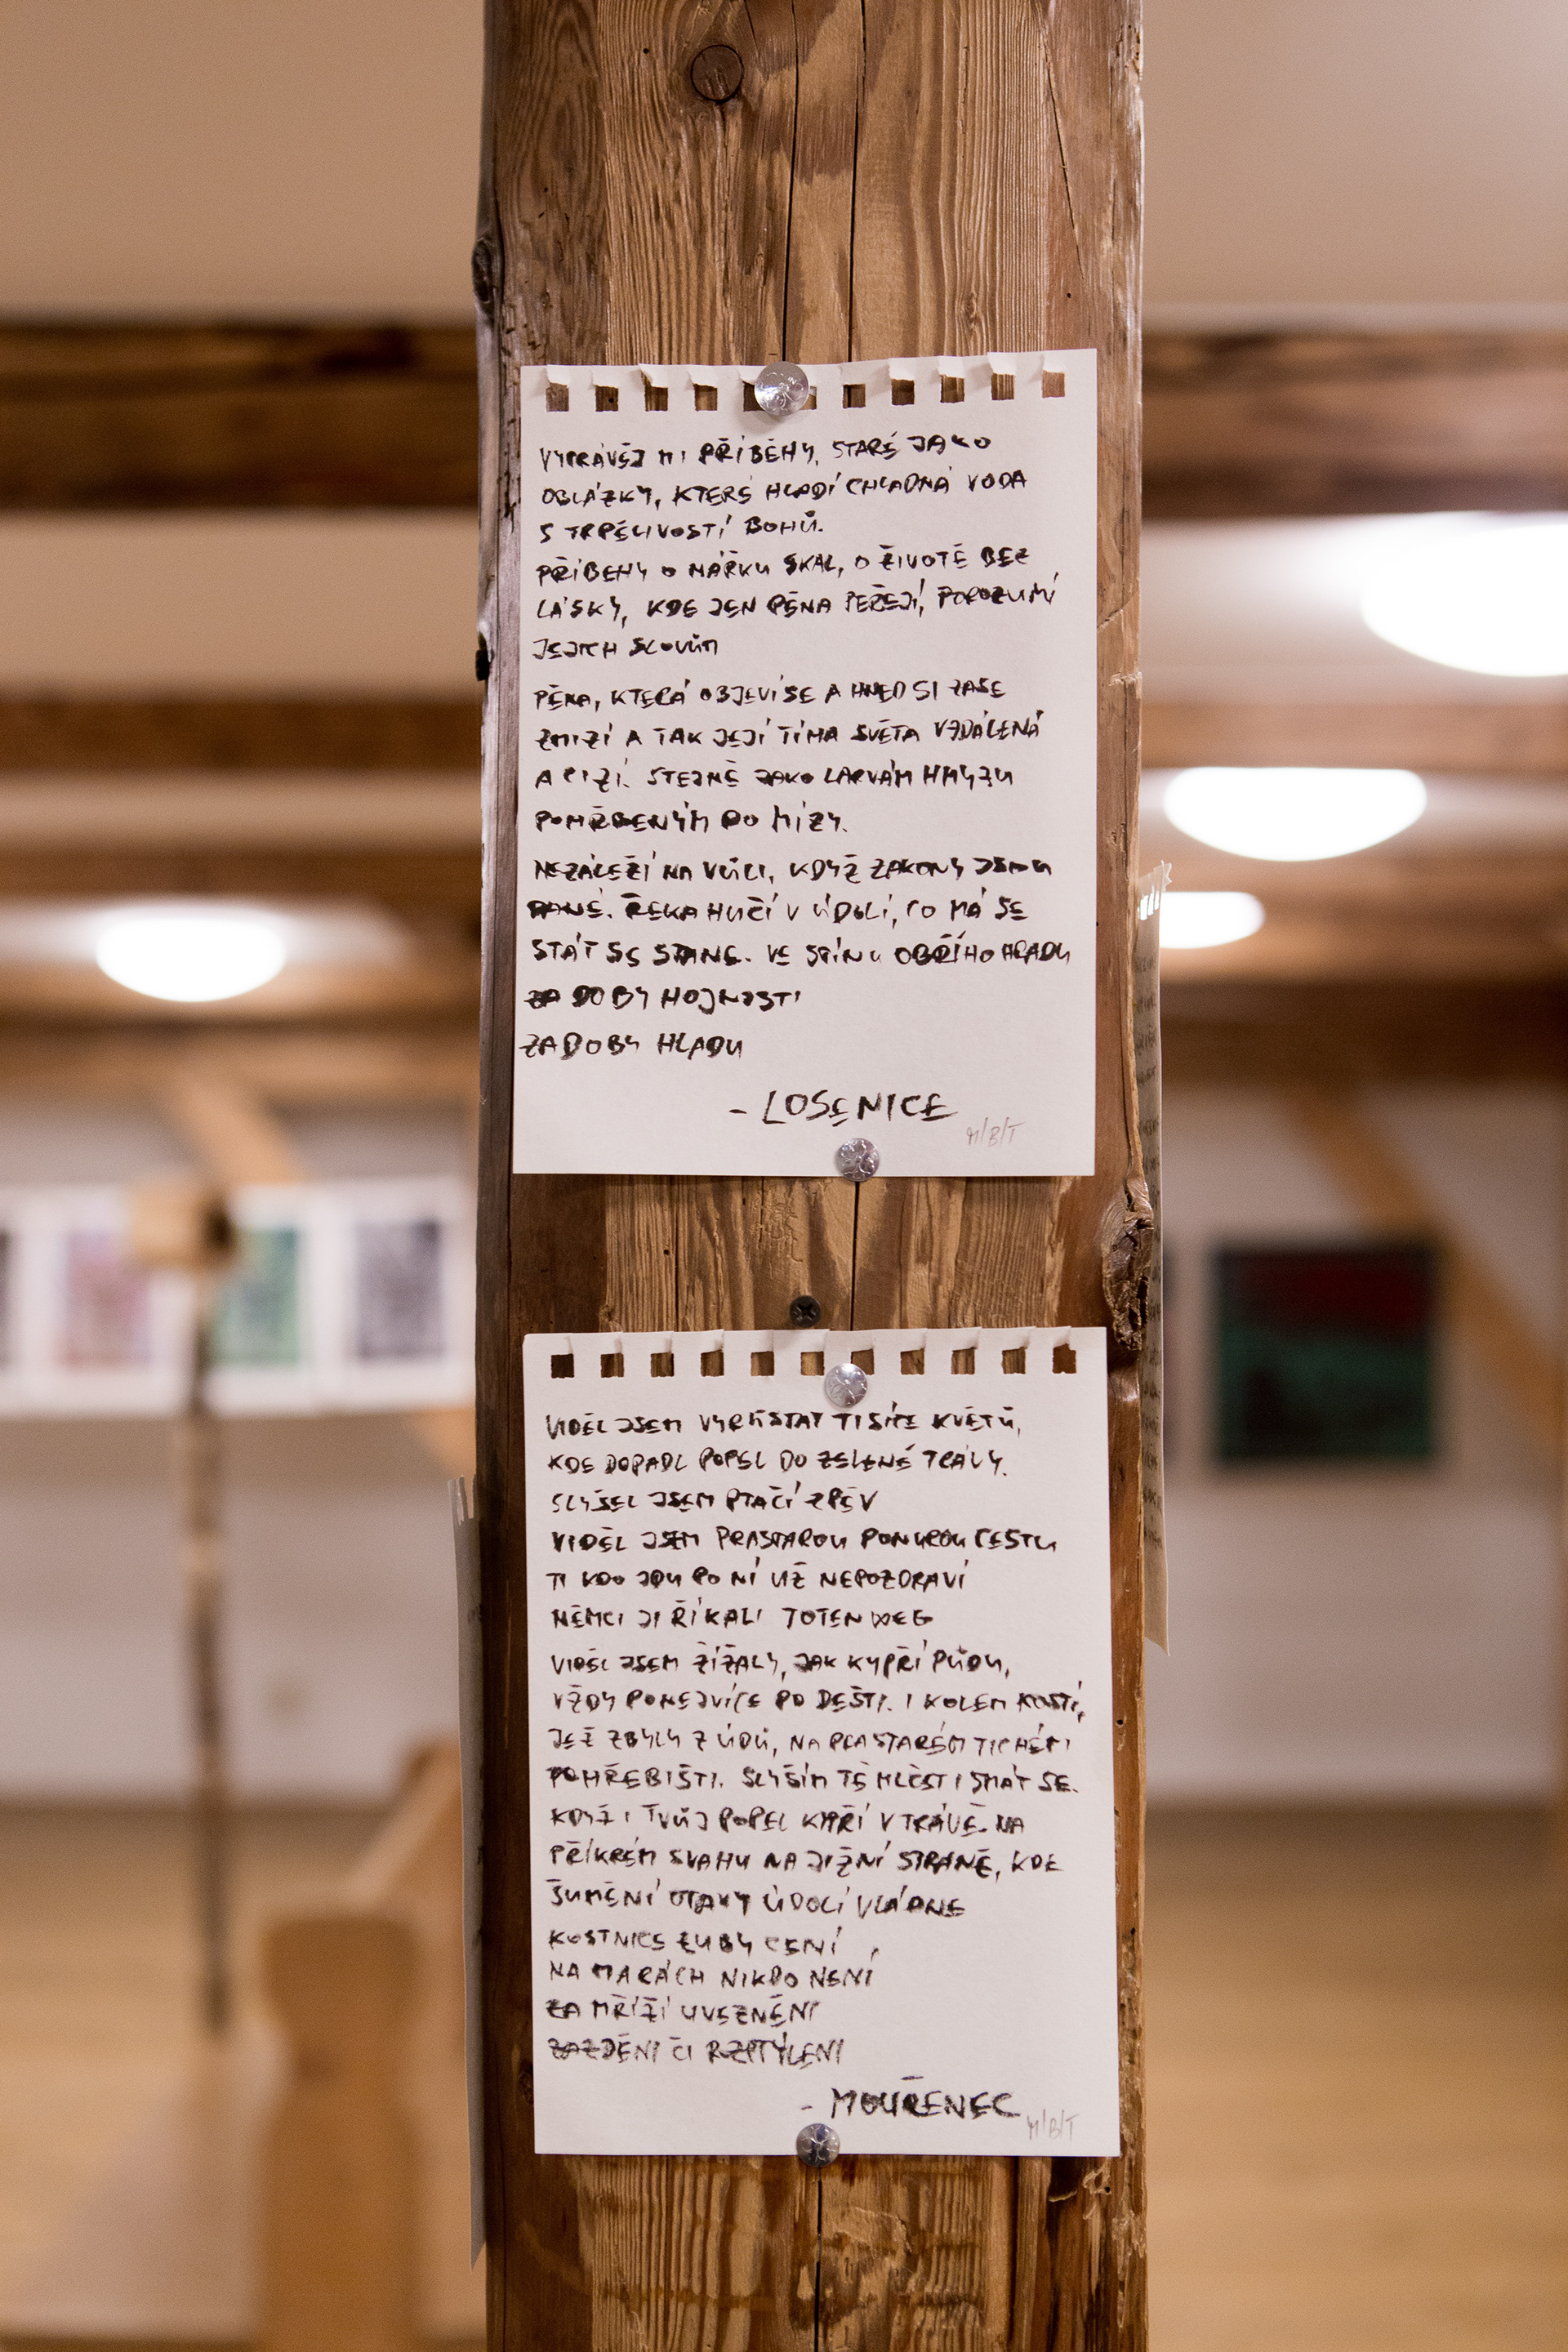 VYPRÁVĚJ MI PŘÍBĚHY, STARÉ JAKO
OBLÁZKY, KTERÉ HLADÍ CHLADNÁ VODA
S TRPĚLIVOSTÍ BOHŮ.
PŘÍBĚHY O NÁŘKU SKAL, O ŽIVOTĚ BEZ
LÁSKY, KDE JEN PĚNA PEŘEJÍ, POROZUMÍ
JEJICH SLOVŮM
PĚNA, KTERÁ OBJEVÍ SE A HNED SI ZASE
ZMIZÍ A TAK JEJÍ TÍHA SVĚTA VZDÁLENÁ
A CIZÍ. STEJNĚ JAKO LARVÁM HMYZU
POHŘBENÝM DO MÍZY.
NEZÁLEŽÍ NA VŮLI, KDYŽ ZÁKONY JSOU
DANÉ. ŘEKA HUČÍ V ÚDOLÍ, CO MÁ SE
STÁT SE STANE. VE STÍNU OBŘÍHO HRADU
ZA DOBY HOJNOSTI
ZA DOBY HLADU
- LOSENICE
M/B/T
VIDĚL JSEM VYRŮSTAT TISÍCE KVĚTŮ,
KDE DOPADL POPEL DO ZELENÉ TRÁVY.
SLYŠEL JSEM PTAČÍ ZPĚV
VIDĚL JSEM PRASTAROU PONUROU CESTU
TI KDO JDU PO NÍ UŽ NEPOZDRAVÍ
NĚMCI JI ŘÍKALI TOTENWEG
VIDĚL JSEM ŽÍŽALY, JAK KYPŘÍ PŮDU,
VŽDY PONEJVÍCE PO DEŠTI. I KOLEM KOSTÍ,
JEŽ ZBYLY Z ÚDŮ, NA PRASTARÉM TICHÉM
POHŘEBIŠTI. SLYŠÍM TĚ MLČET I SMÁT SE.
KDYŽ I TVŮJ POPEL KYPŘÍ V TRÁVĚ. NA
PŘÍKRÉM SVAHU NA JIŽNÍ STRANĚ, KDE
ŠUMĚNÍ OTAVY ÚDOLÍ VLÁDNE
KOSTNICE ZUBY CENÍ,
NA MARÁCH NIKDO NENÍ
ZA MŘÍŽÍ UVEZNĚNI
ZAZDĚNI ČI RZPTÝLENI
- MOUŘENEC
M/B/T